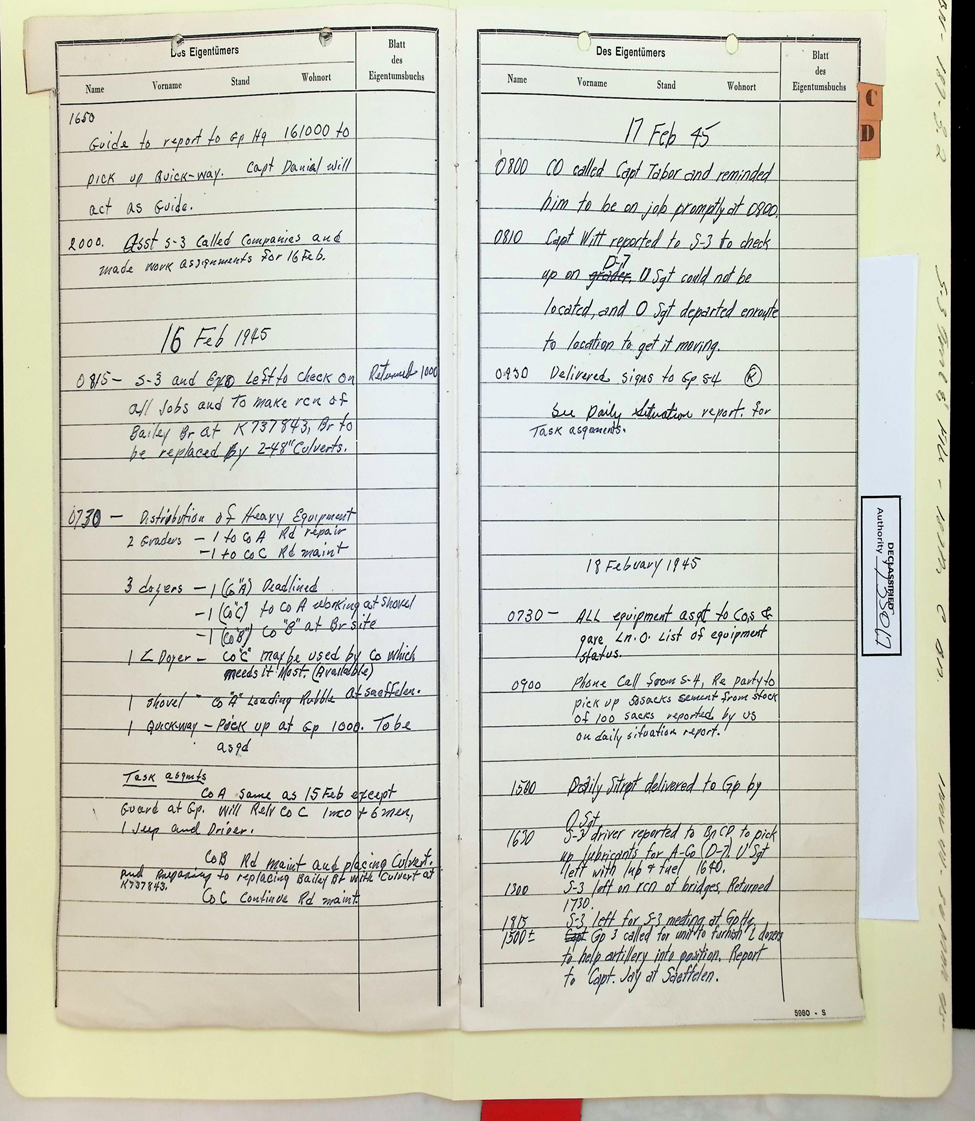 Des Eigentümers
Blatt
des
Eigentumsbuchs
Name Vorname Stand Wohnort
1650
Guide to report to Gp Hq 161000 to
pick up Quick-way. Capt Danial will
act as Guide.
2000. Asst S-3 Called Companies and
made work assignments for 16 Feb.
16 Feb 1945
0815 - S-3 and ExO Left to check on Returned 1000
all Jobs and To make rcn of
Bailey Br at K737843, Br to
be replaced By 2-48" Culverts.
0730 - Distribution of Heavy Equipment
2 Graders - 1 to Co A Rd repair
- 1 to Co C Rd maint
3 dozers - 1 (Co "A") Deadlined
- 1 (Co "C") to Co A working at shovel
- 1 (Co "B") Co "B" at Br site
1 L Dozer - Co "C" may be used by Co which
needs it Most. (Available)
1 shovel - Co "A" Loading Rubble at saeffelen.
1 Quickway - Pick up at Gp 1000. To be
asgd
Task asgmts
Co A same as 15 Feb except
Guard at Gp. will Relv Co C 1 nco + 6 men,
1 Jeep and Driver.
Co B Rd maint and placing Culvert.
and Preparing to replacing Bailey Br with Culvert at
K737843.
Co C Continue Rd maint
Des Eigentümers
Blatt
des
Eigentumsbuchs
Name Vorname Stand Wohnort
17 Feb 45
0800 CO called Capt Tabor and reminded
him to be on job promptly at 0800.
0810 Capt Witt reported to S-3 to check
D-7
up on grader. O Sgt could not be
located, and O Sgt departed enroute
to location to get it moving.
0930 Delivered signs to Gp S-4 K
See Daily Situation report. for
Task asgnments.
18 Febuary 1945
0730 - ALL equipment asgt to Co,s &
gave Ln. O. List of equipment
status.
0900 Phone Call from S-4, Re party to
pick up sacks sement from stock
of 100 sacks reported by us
on daily situation report.
1500 Daily Sitrpt delivered to Gp by
O Sgt
1630 S-3 driver reported to Bn CP to pick
up lubricants for A-Co (D-7). O Sgt
left with lub & fuel 1640.
1300 S-3 left on rcn of bridges. Returned
1730.
1815 S-3 left for S-3 meeting at Gp Hq.
1500± Capt Gp 3 called for unit to furnish L dozers
to help artillery into position. Report
to Capt. Jay at Saeffelen.
5980 - S
C
D
DECLASSIFIED
Authority